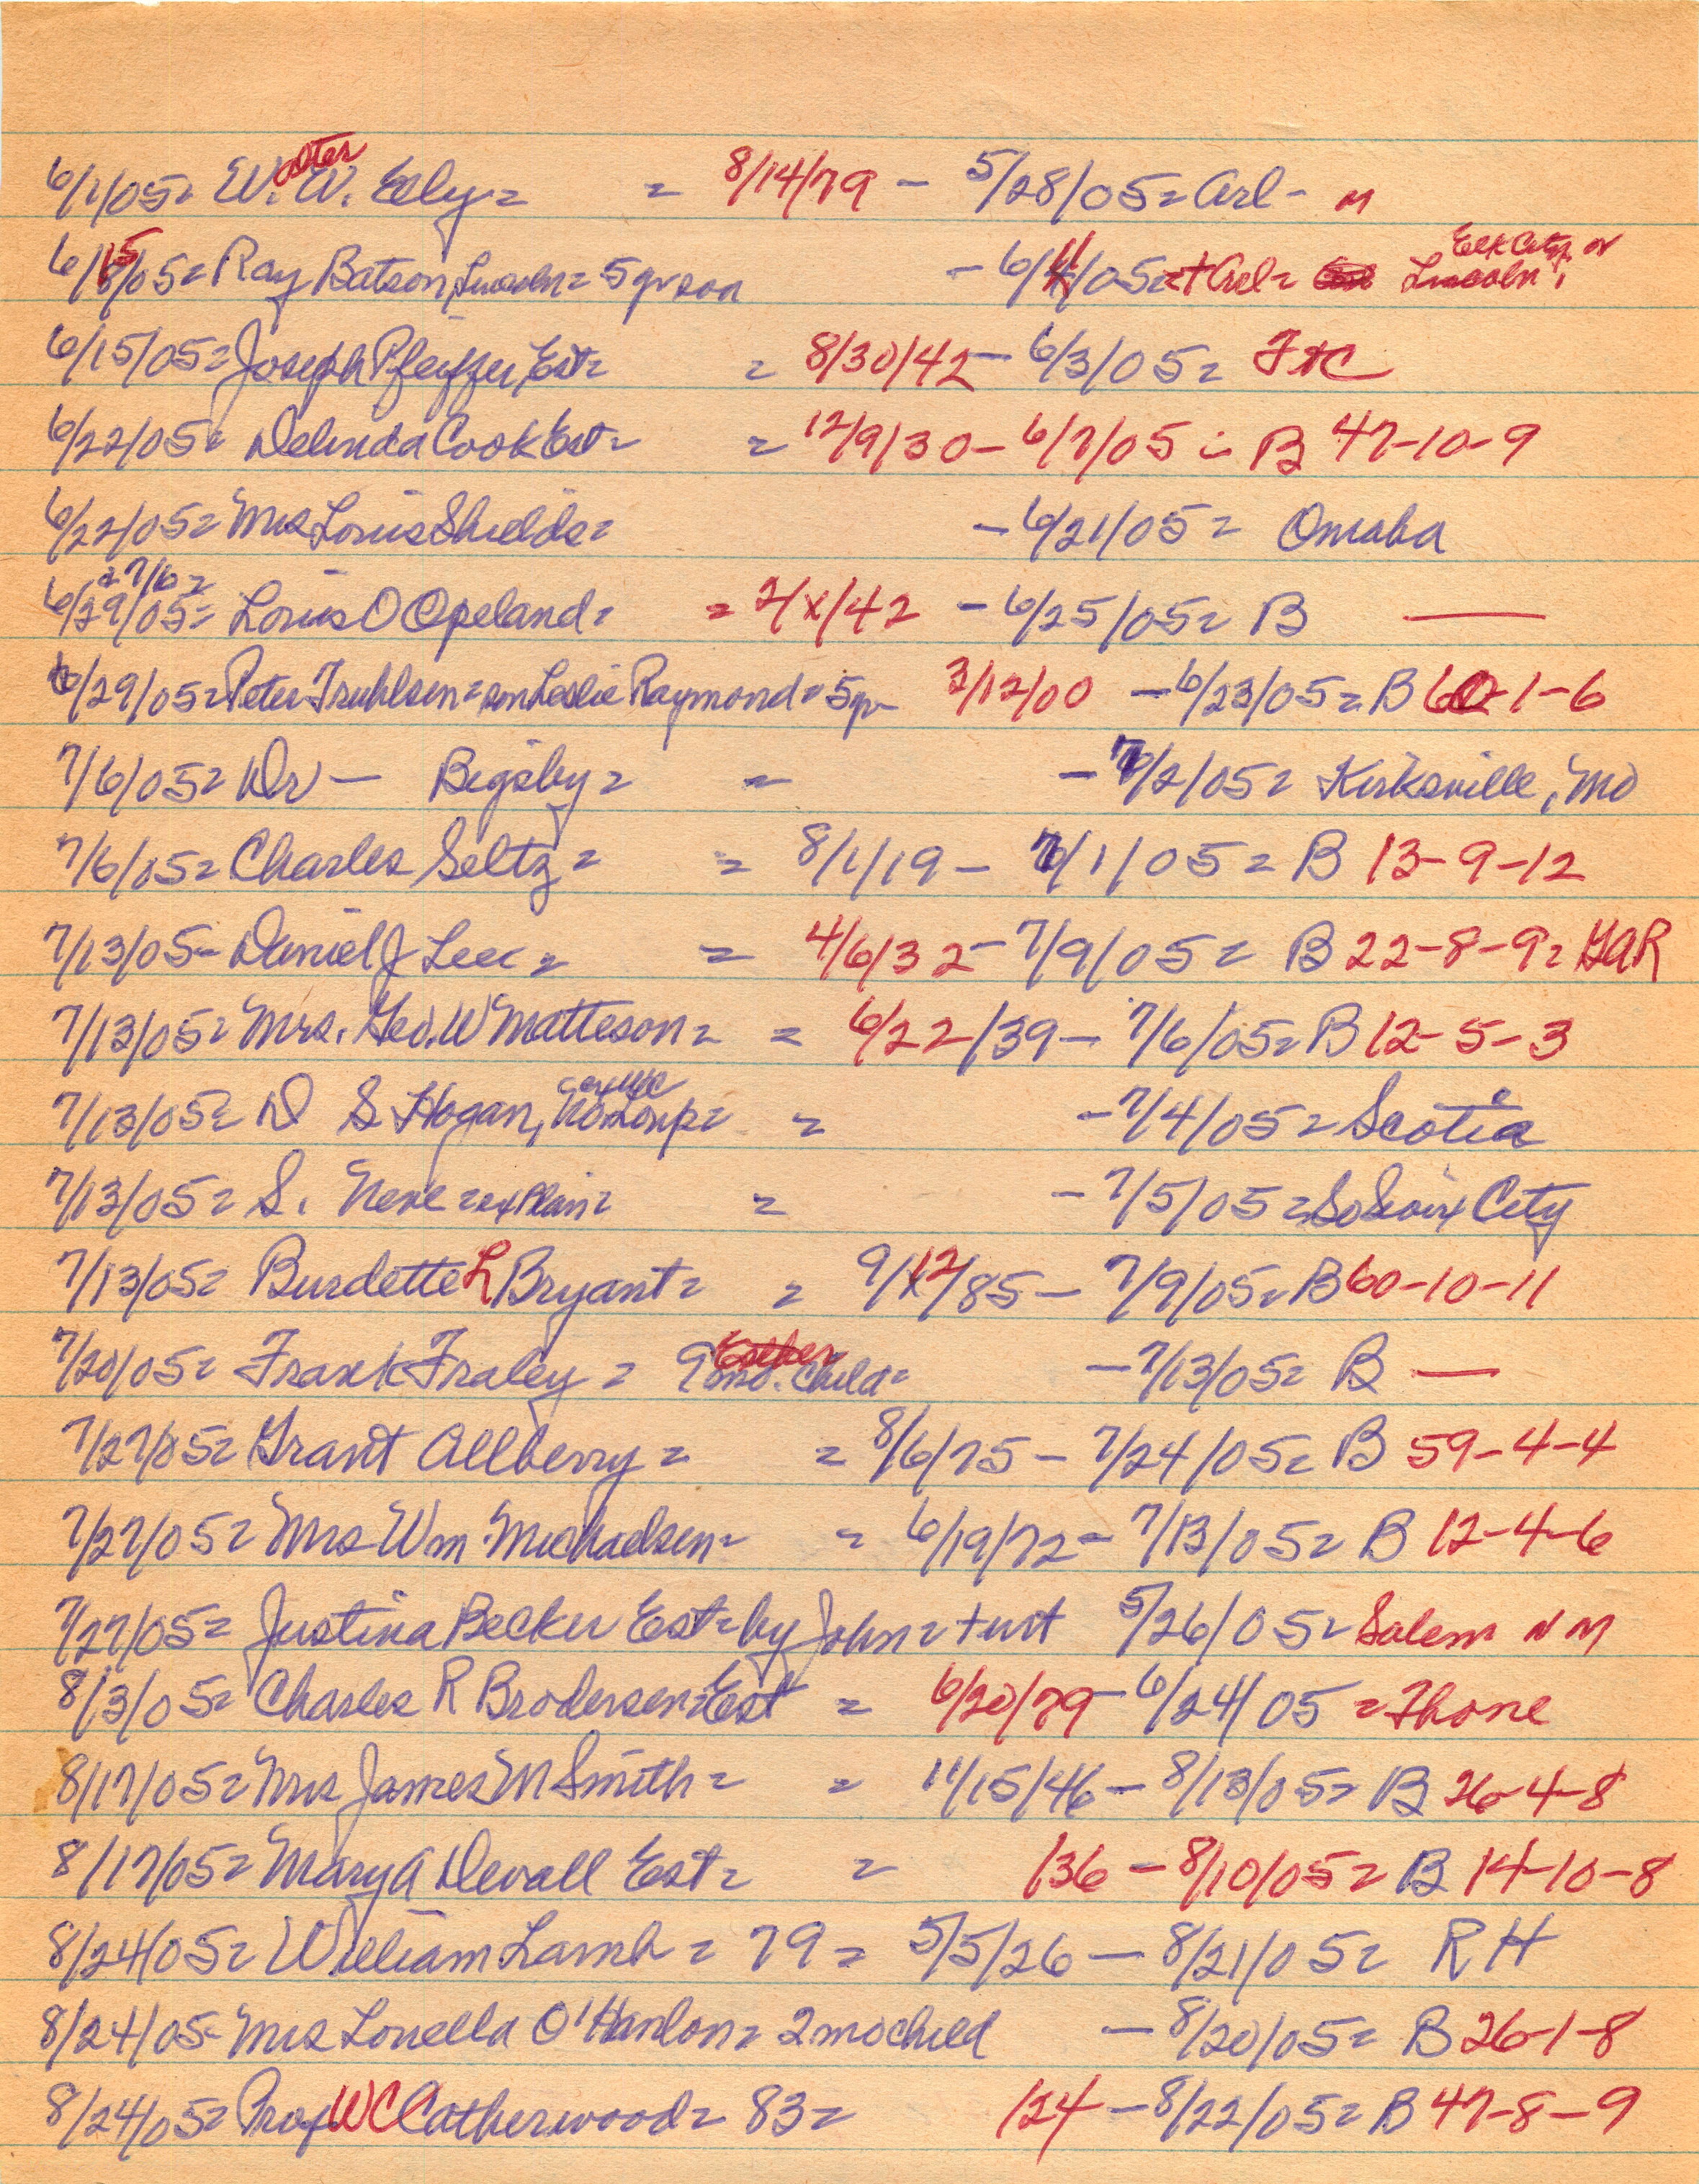 6/1/05= W. W. Ely= = 8/14/79 - 5/28/05= Arl- M
6/15/05= Ray Batson, Lincoln= 5 yr son - 6/11/05= + Arl= Lincoln, Elk City or
6/15/05= Joseph Pfeiffer, Est= = 8/30/42 - 6/3/05= Ft C
6/22/05= Delinda Cook Est= = 12/9/30 - 6/7/05 = B 47-10-9
6/22/05= Mrs Louis Shields= - 6/21/05= Omaha
6/29/05= & 7/6= Louis O Opeland= = 2/x/42 - 6/25/05= B —
6/29/05= Peter Truhlsen= son Leslie Raymond= 5 yr 3/12/00 - 6/23/05= B 60-1-6
7/6/05= Dr — Bigsby= = - 7/2/05= Kirksville, Mo
7/6/05= Charles Seltz= = 8/1/19 - 7/1/05= B 13-9-12
7/13/05- Daniel J Lee= = 4/6/32 - 7/9/05= B 22-8-9= GAR
7/13/05= Mrs. Geo. W Matteson= = 6/22/39 - 7/6/05= B 12-5-3
7/13/05= D S Hogan, No Loup= = - 7/4/05= Scotia
7/13/05= S. Neve = ex Plain= = - 7/5/05= So Sioux City
7/13/05= Burdette L Bryant= = 9/12/85 - 7/9/05= B 60-10-11
7/20/05= Frank Fraley= 9 mo. child= Esther - 7/13/05= B —
7/27/05= Grant Allberry= = 8/6/75 - 7/24/05= B 59-4-4
7/27/05= Mrs Wm Michaelsen= = 6/19/72 - 7/13/05= B 12-4-6
7/27/05= Justina Becker Est= by John= + wt 5/26/05= Salem N M
8/3/05= Charles R Brodersen= Est = 6/20/79 - 6/24/05 = Thone
8/17/05= Mrs James M Smith= = 11/15/46 - 8/13/05= B 26-4-8
8/17/05= Mary A Devall Est= = /36 - 8/10/05= B 14-10-8
8/24/05= William Lamb= 79= 5/5/26 - 8/21/05= R H
8/24/05- Mrs Louella O'Hanlon= 2 mo child - 8/20/05= B 26-1-8
8/24/05= Prof W C Catherwood= 83= /24 - 8/22/05= B 47-8-9